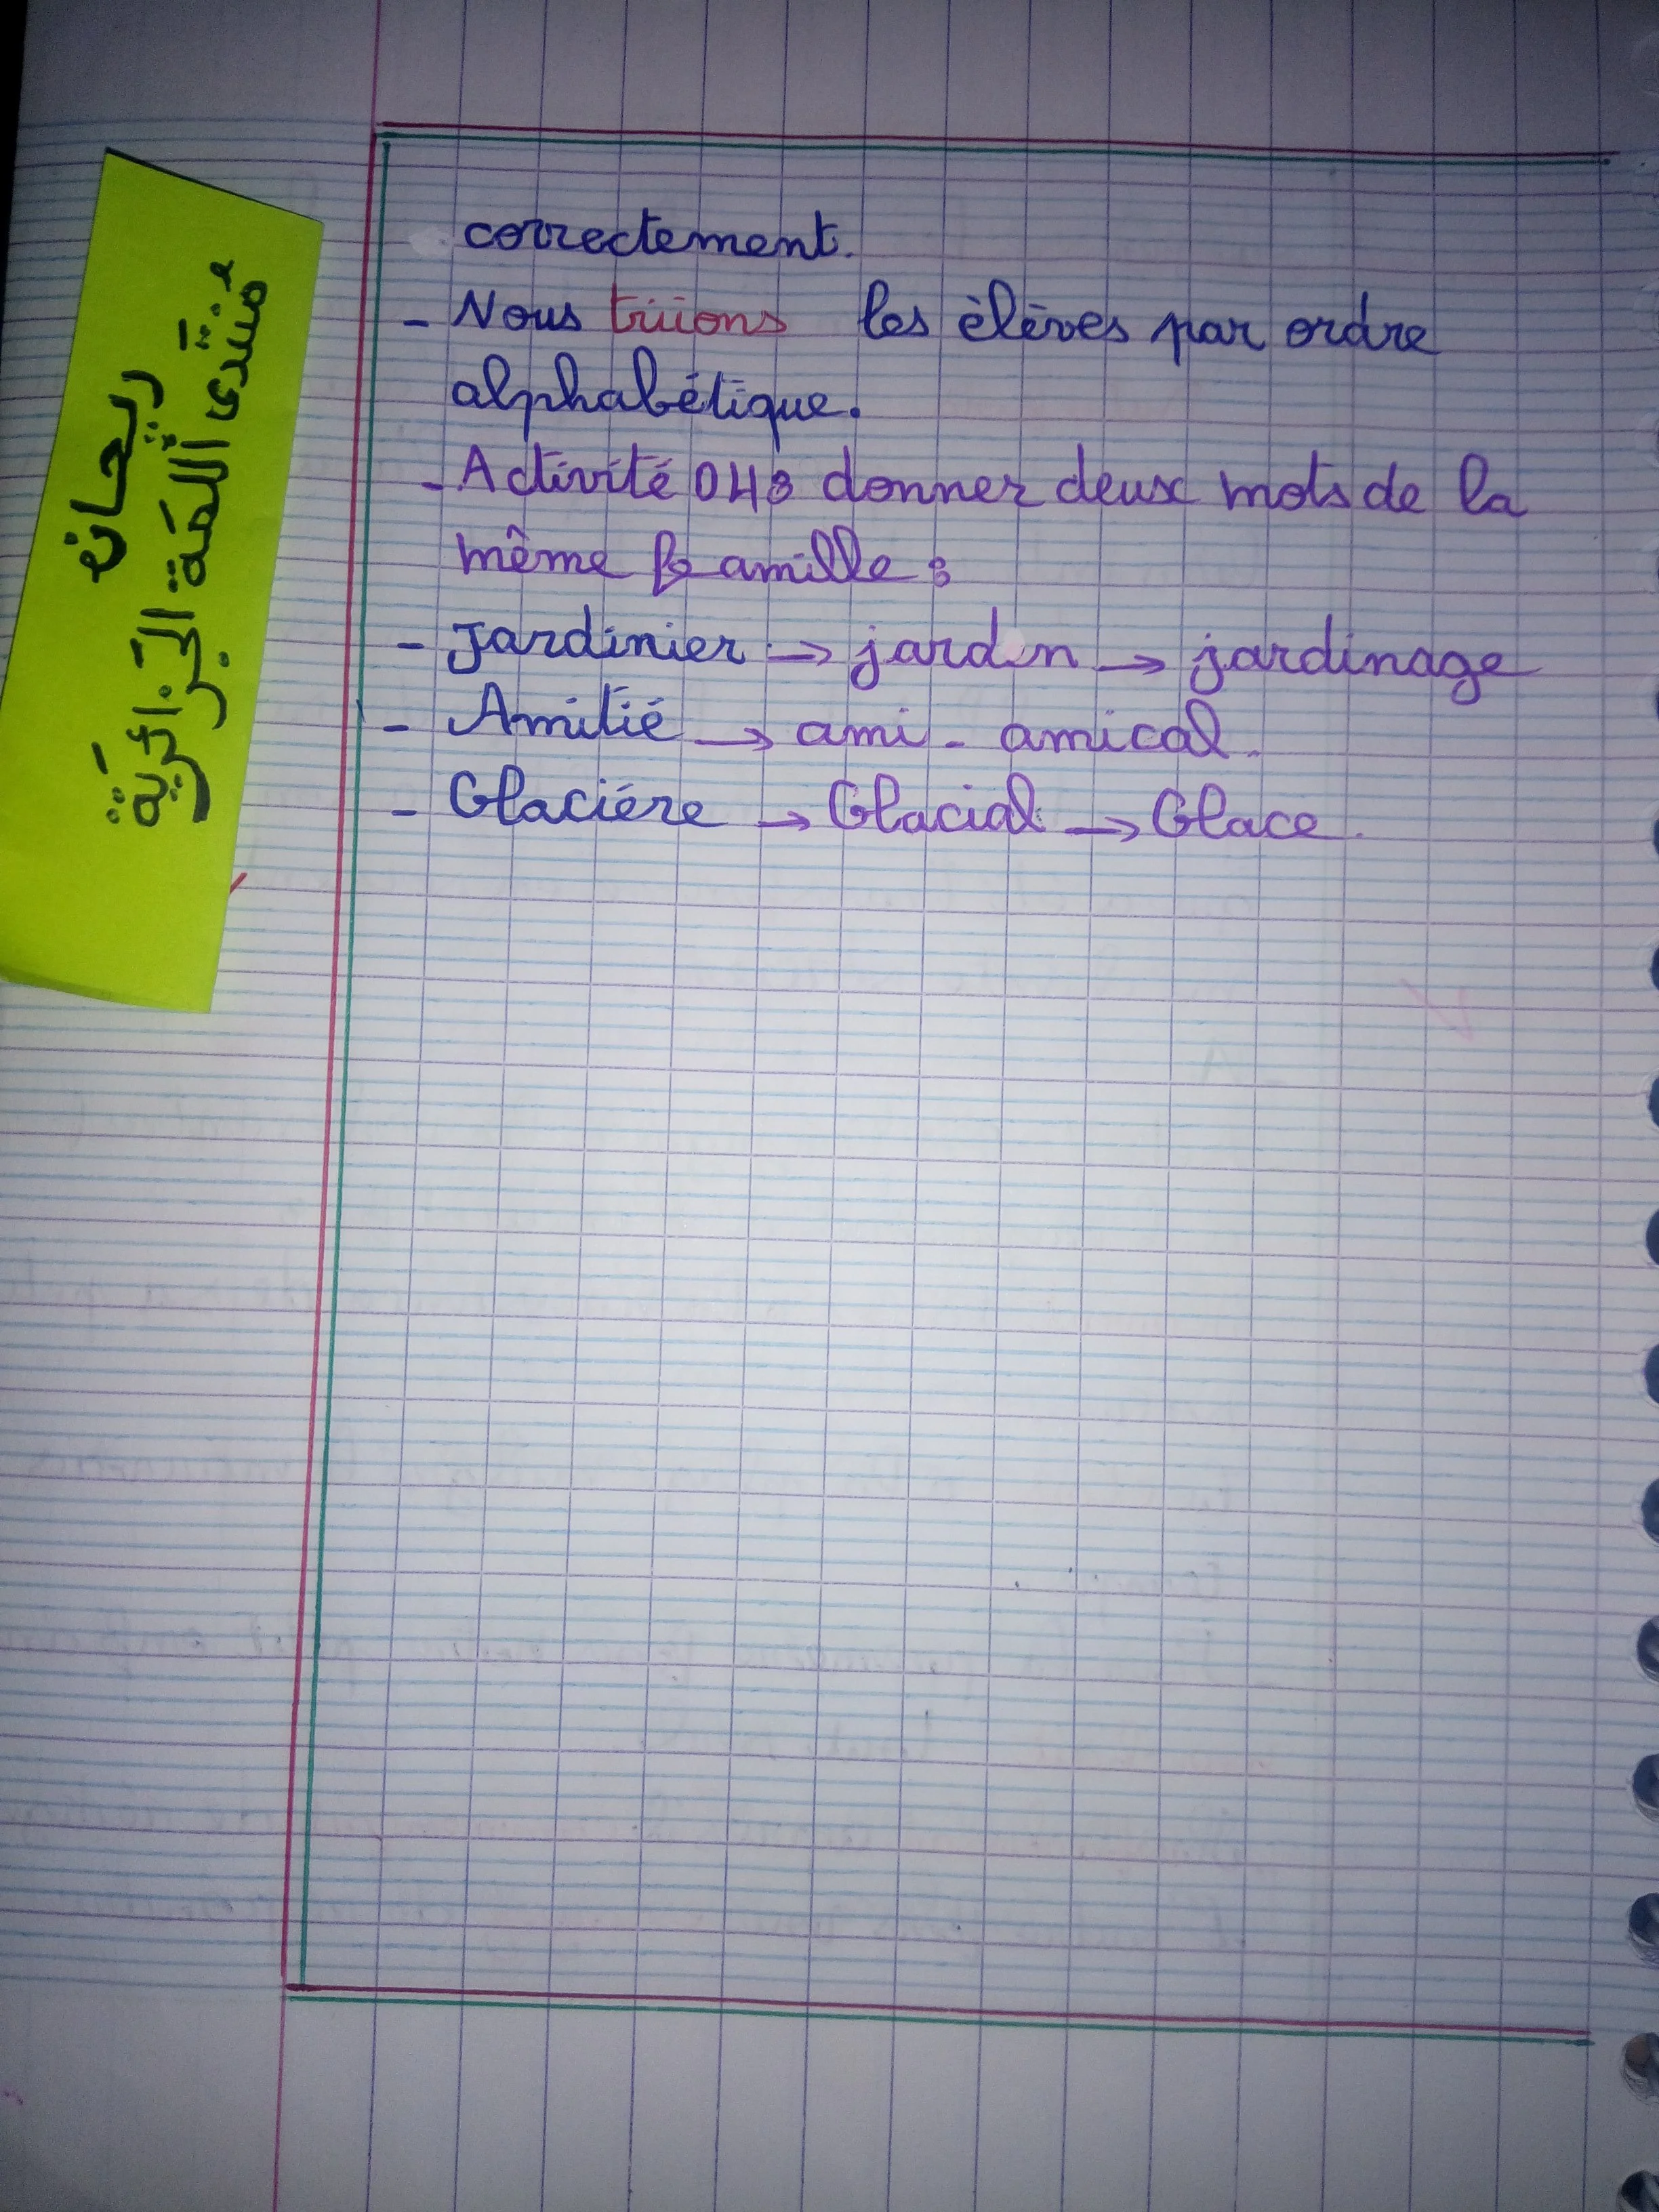 correctement.
- Nous triions les élèves par ordre
alphabétique.
- Activité 04: donner deux mots de la
même famille:
- Jardinier → jardin → jardinage
- Amitié → ami - amical.
- Glaciére → Glacial → Glace.
ريحان
منتدى اللمة الجزائرية